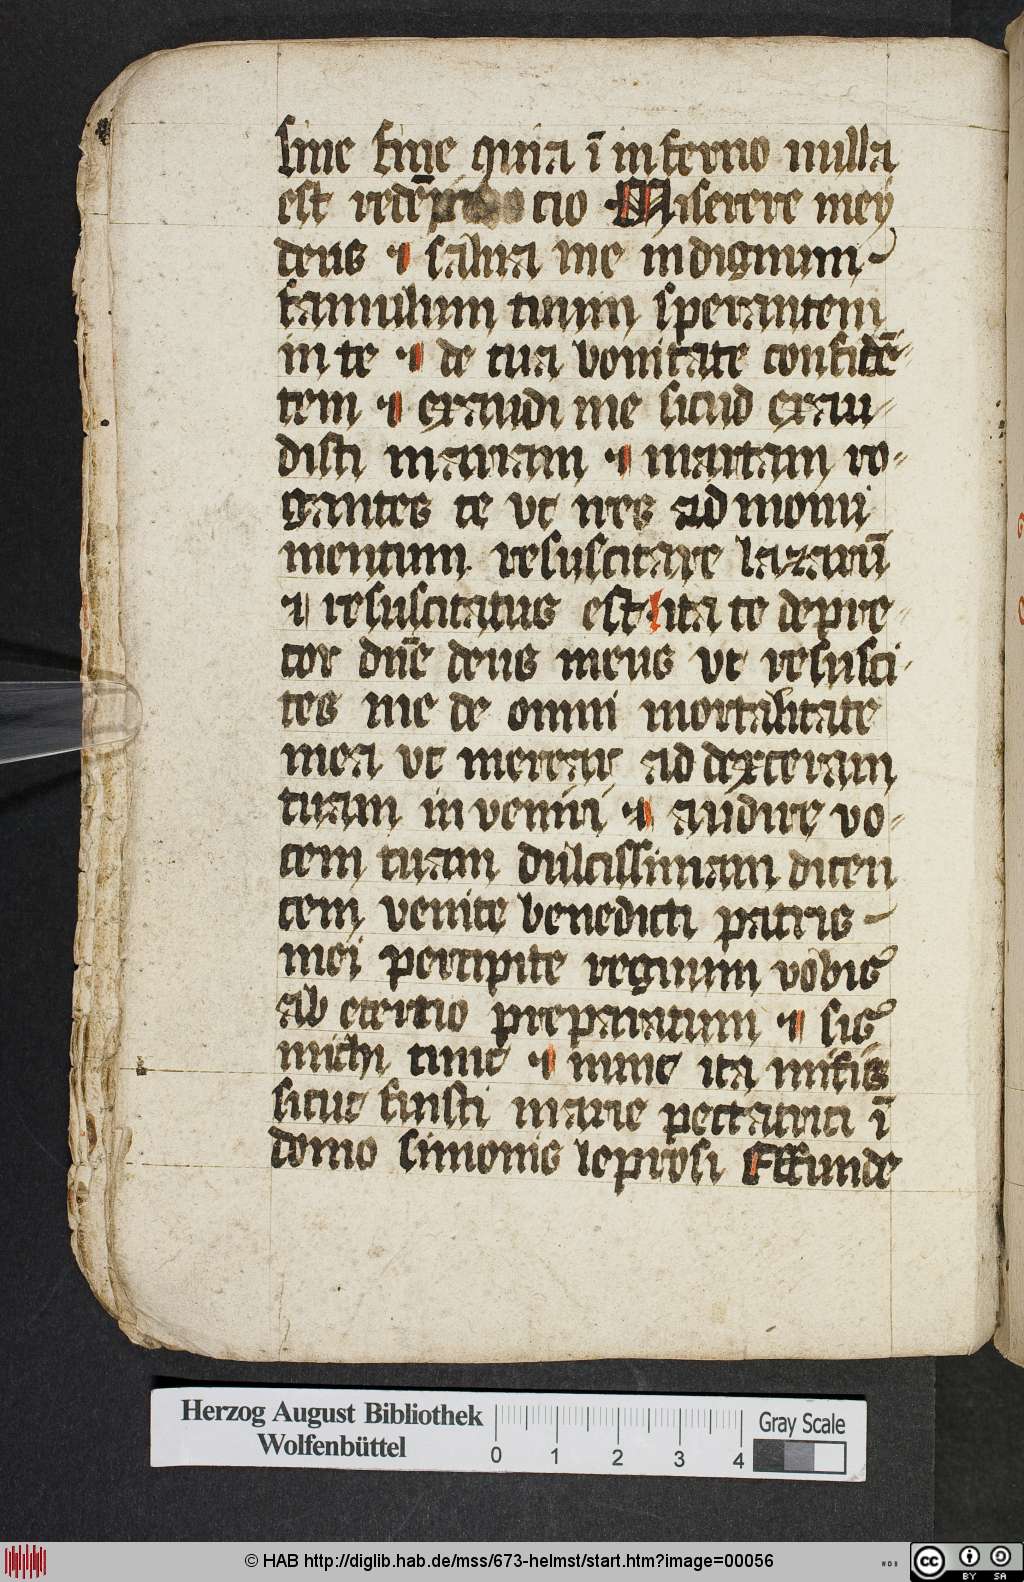 sine fine quia ī inferno nulla
est redēp cio Miserere mey
deus ⁊ salua me indignum
famulum tuum sperantem
in te ⁊ de tua bonitate confidē-
tem ⁊ exaudi me sicud exau-
disti mariam ⁊ martam ro-
gantes te ut ires ad monu
mentum resuscitare lazarū
⁊ resuscitatus est ita te depre-
cor dn̄e deus meus ut resusci-
tes me de omni mortalitate
mea ut merear ad dexteram
tuam inveniri ⁊ audire vo-
cem tuam dulcissimam dicen
tem venite benedicti patris
mei percipite regnum vobis
ab eterno preparatum ⁊ sis
michi tunc ⁊ nunc ita mitis
sicut fuisti marie peccatrici ī
domo simonis leprosi Effunde
Herzog August Bibliothek
Wolfenbüttel
0 1 2 3 4
Gray Scale
© HAB http://diglib.hab.de/mss/673-helmst/start.htm?image=00056
WDB
cc BY SA